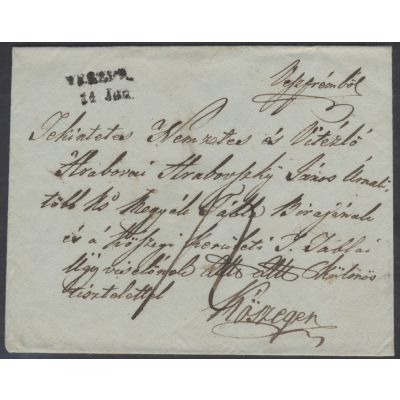 VESZPR.
14 JAN.
Veszprémből
Tekintetes Nemzetes és Vitézlő
Hrabovai Hrabovszky János Úrnak
több Ns Megyék Tábl. Birájának
és a Kőszegi kerületi T. Táblai
Ügyviselőnek különös
tisztelettel
Kőszegen